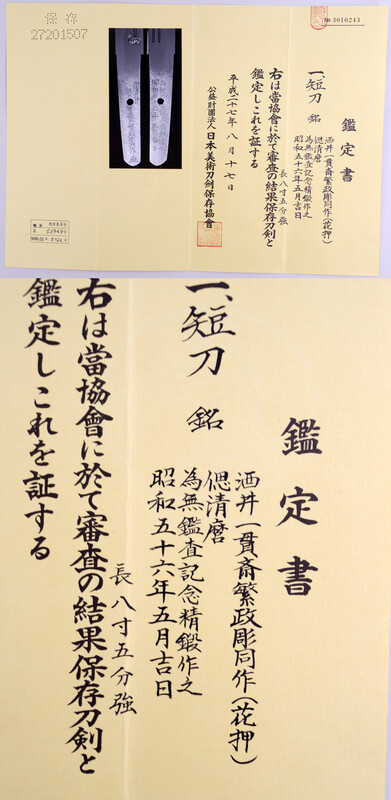 保存
27201507
№ 3010243
鑑定書
一、短刀 銘
酒井一貫斎繁政彫同作(花押)
偲清麿
為無鑑査記念精鍛作之
昭和五十六年五月吉日
長八寸五分強
右は當協會に於て審査の結果保存刀剣と
鑑定しこれを証する
平成二十七年八月十七日
公益財團法人日本美術刀劍保存協會
鑑定書
一、短刀 銘
酒井一貫斎繁政彫同作(花押)
偲清麿
為無鑑査記念精鍛作之
昭和五十六年五月吉日
長八寸五分強
右は當協會に於て審査の結果保存刀剣と
鑑定しこれを証する